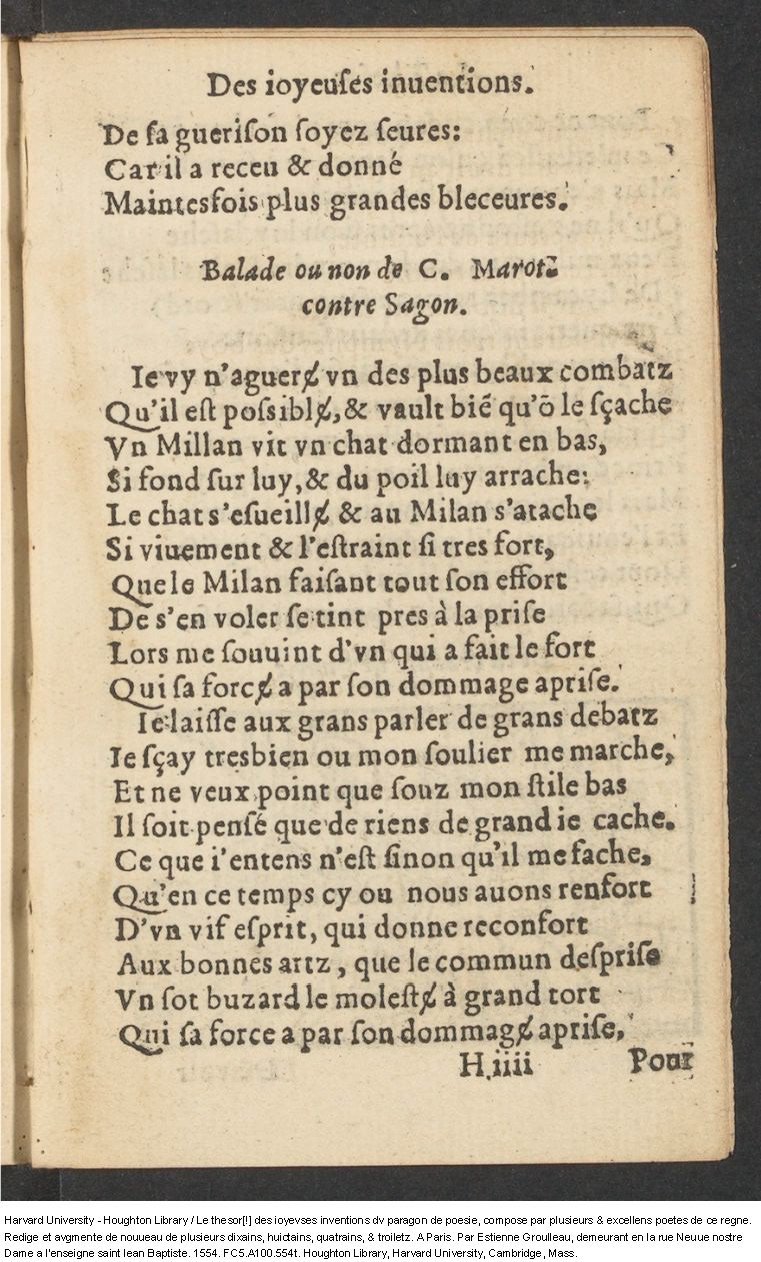 Des ioyeuſes inuentions.
De ſa gueriſon ſoyez ſeures:
Car il a receu & donné
Maintesfois plus grandes bleceures.
Balade ou non de C. Marot
contre Sagon.
Ie vy n'aguerɇ vn des plus beaux combatz
Qu'il eſt poſsiblɇ, & vault biē qu'ō le ſçache
Vn Millan vit vn chat dormant en bas,
Si fond ſur luy, & du poil luy arrache:
Le chat s'eſueillɇ & au Milan s'atache
Si viuement & l'eſtraint ſi tres fort,
Que le Milan faiſant tout ſon effort
De s'en voler ſe tint pres à la priſe
Lors me ſouuint d'vn qui a fait le fort
Qui ſa forcɇ a par ſon dommage apriſe.
Ie laiſſe aux grans parler de grans debatz
Ie ſçay tresbien ou mon ſoulier me marche,
Et ne veux point que ſouz mon ſtile bas
Il ſoit penſé que de riens de grand ie cache.
Ce que i'entens n'eſt ſinon qu'il me fache,
Qu'en ce temps cy ou nous auons renfort
D'vn vif eſprit, qui donne reconfort
Aux bonnes artz, que le commun deſpriſe
Vn ſot buzard le moleſtɇ à grand tort
Qui ſa force a par ſon dommagɇ apriſe,
H.iiii Pour
Harvard University - Houghton Library / Le thesor[!] des ioyevses inventions dv paragon de poesie, compose par plusieurs & excellens poetes de ce regne.
Redige et avgmente de nouueau de plusieurs dixains, huictains, quatrains, & troiletz. A Paris. Par Estienne Groulleau, demeurant en la rue Neuue nostre
Dame a l'enseigne saint Iean Baptiste. 1554. FC5.A100.554t. Houghton Library, Harvard University, Cambridge, Mass.